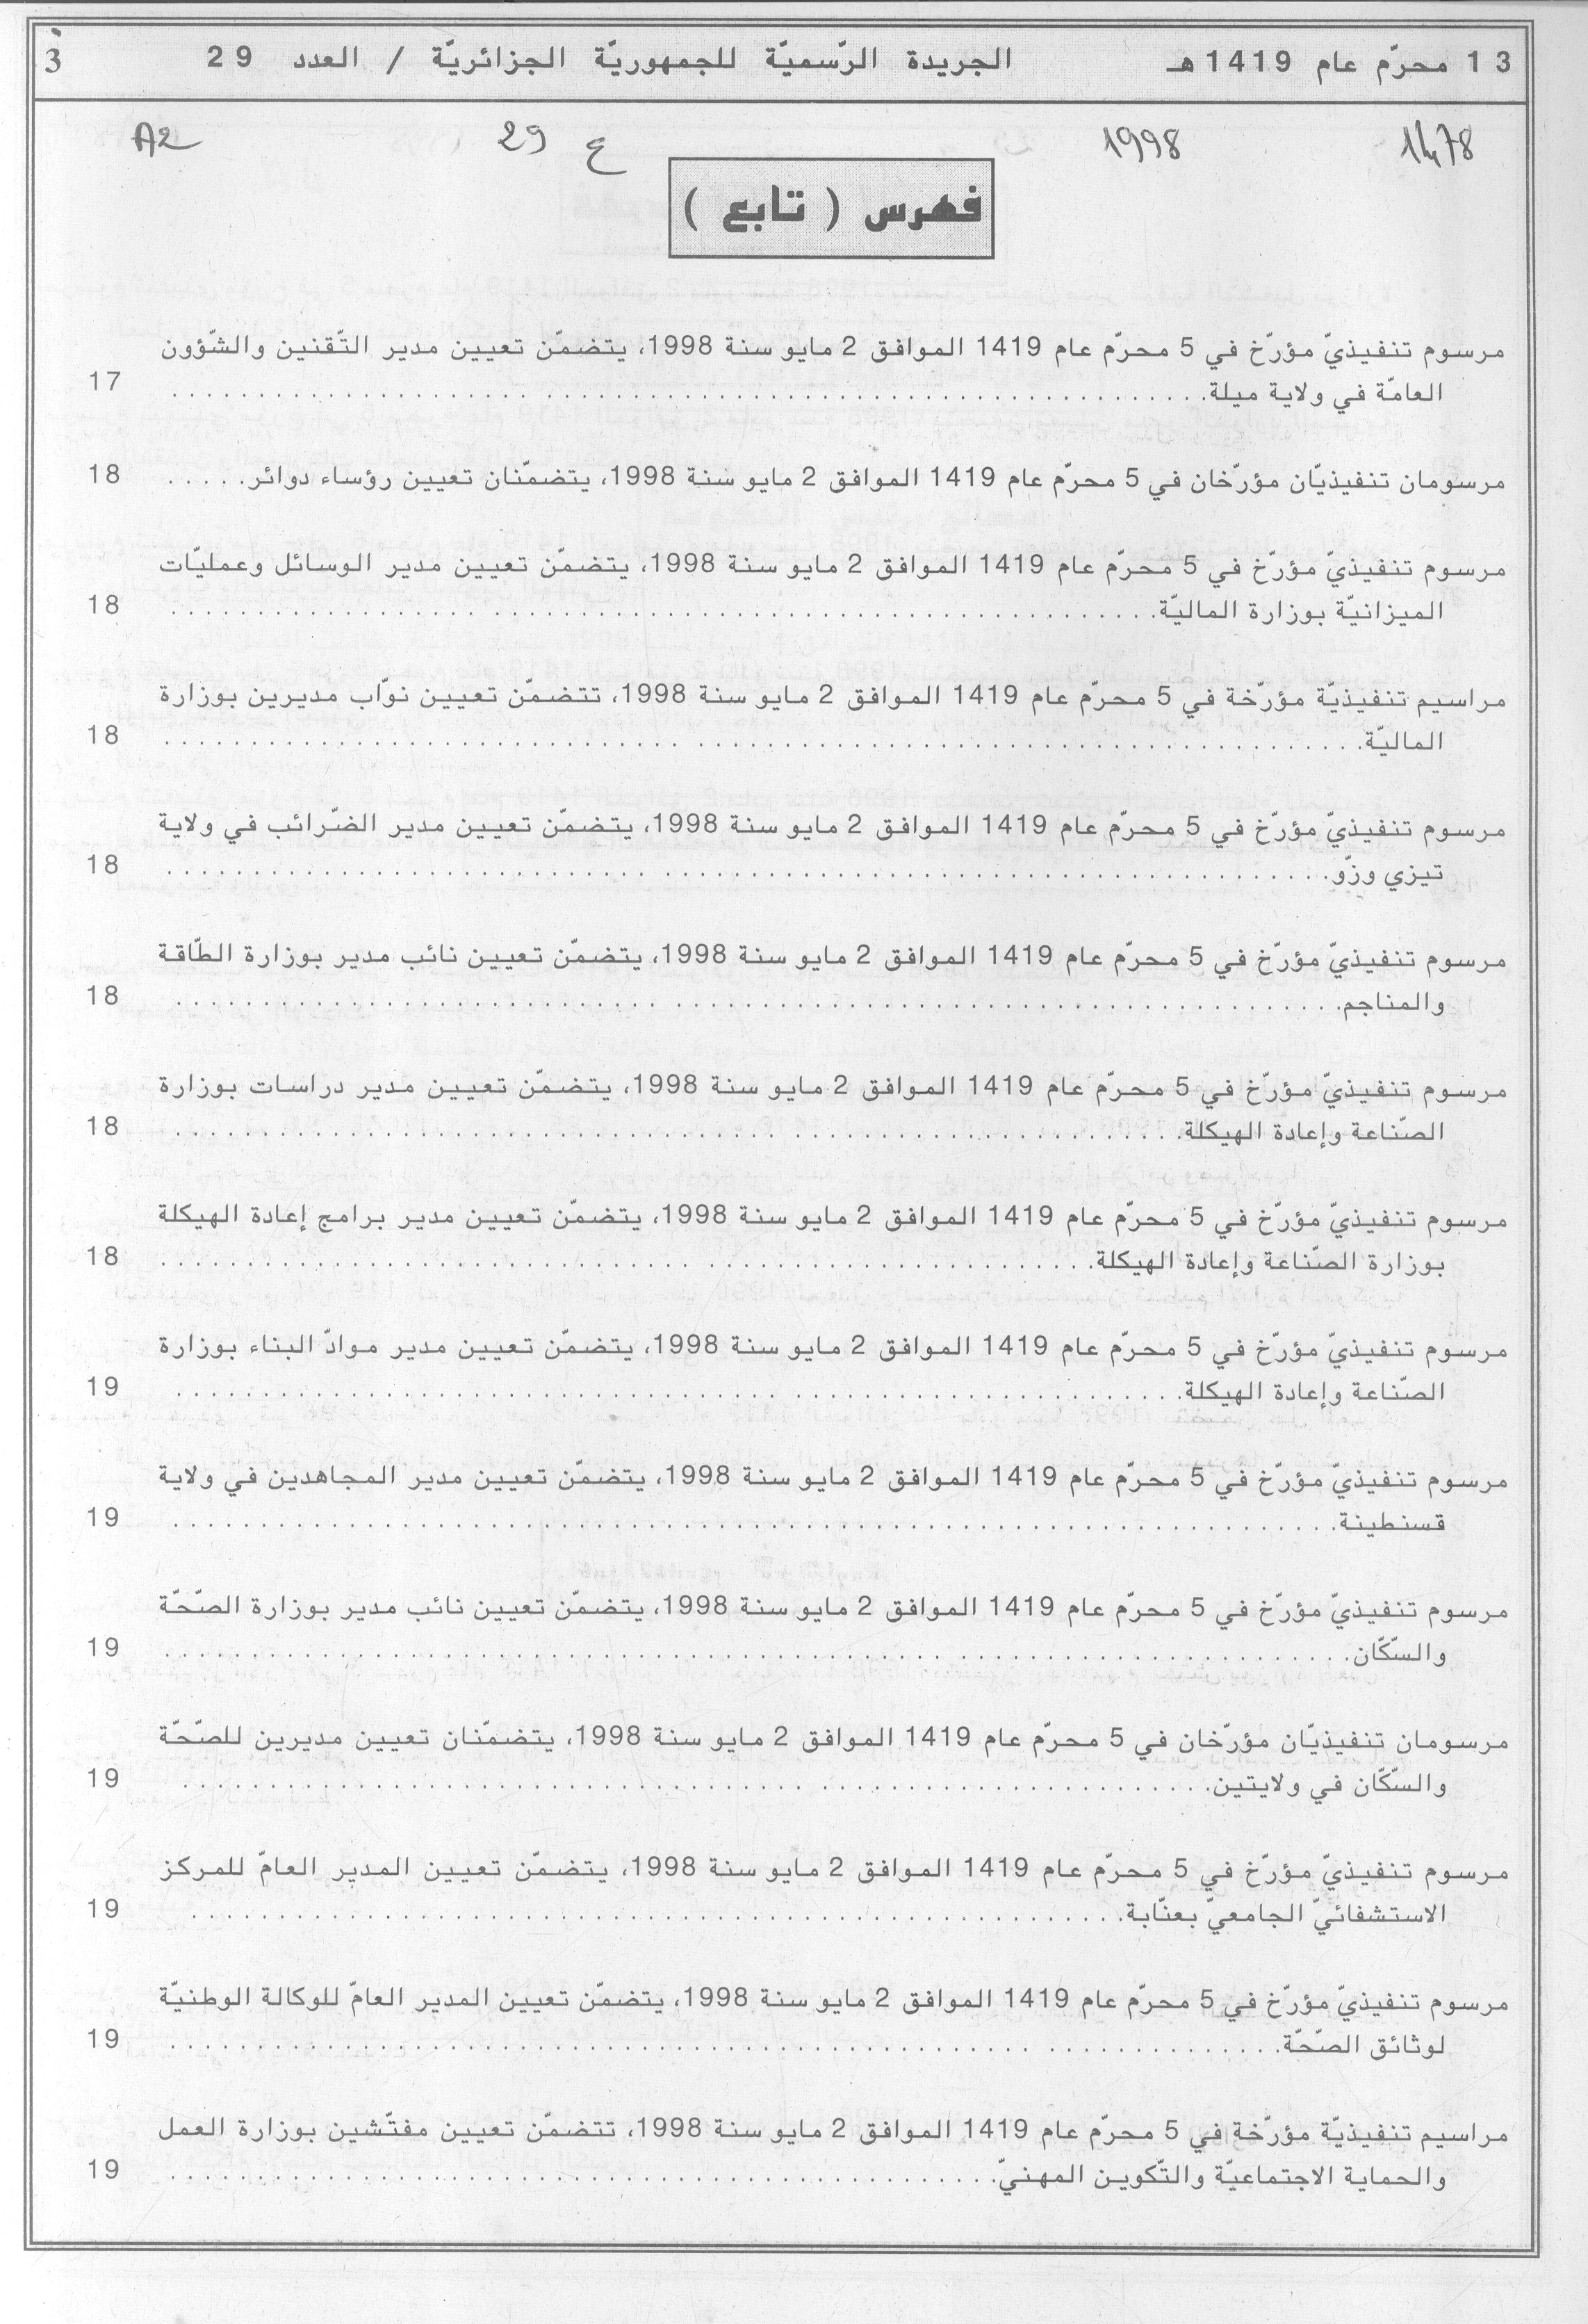 13 محرّم عام 1419 هـ الجريدة الرّسميّة للجمهوريّة الجزائريّة / العدد 29 3
1478 1998 ع 29 A2
فهرس ( تابع )
مرسوم تنفيذيّ مؤرّخ في 5 محرّم عام 1419 الموافق 2 مايو سنة 1998، يتضمّن تعيين مدير التّقنين والشّؤون
العامّة في ولاية ميلة. 17
مرسومان تنفيذيّان مؤرّخان في 5 محرّم عام 1419 الموافق 2 مايو سنة 1998، يتضمّنان تعيين رؤساء دوائر. 18
مرسوم تنفيذيّ مؤرّخ في 5 محرّم عام 1419 الموافق 2 مايو سنة 1998، يتضمّن تعيين مدير الوسائل وعمليّات
الميزانيّة بوزارة الماليّة. 18
مراسيم تنفيذيّة مؤرّخة في 5 محرّم عام 1419 الموافق 2 مايو سنة 1998، تتضمّن تعيين نوّاب مديرين بوزارة
الماليّة. 18
مرسوم تنفيذيّ مؤرّخ في 5 محرّم عام 1419 الموافق 2 مايو سنة 1998، يتضمّن تعيين مدير الضّرائب في ولاية
تيزي وزّو. 18
مرسوم تنفيذيّ مؤرّخ في 5 محرّم عام 1419 الموافق 2 مايو سنة 1998، يتضمّن تعيين نائب مدير بوزارة الطّاقة
والمناجم. 18
مرسوم تنفيذيّ مؤرّخ في 5 محرّم عام 1419 الموافق 2 مايو سنة 1998، يتضمّن تعيين مدير دراسات بوزارة
الصّناعة وإعادة الهيكلة. 18
مرسوم تنفيذيّ مؤرّخ في 5 محرّم عام 1419 الموافق 2 مايو سنة 1998، يتضمّن تعيين مدير برامج إعادة الهيكلة
بوزارة الصّناعة وإعادة الهيكلة. 18
مرسوم تنفيذيّ مؤرّخ في 5 محرّم عام 1419 الموافق 2 مايو سنة 1998، يتضمّن تعيين مدير موادّ البناء بوزارة
الصّناعة وإعادة الهيكلة. 19
مرسوم تنفيذيّ مؤرّخ في 5 محرّم عام 1419 الموافق 2 مايو سنة 1998، يتضمّن تعيين مدير المجاهدين في ولاية
قسنطينة. 19
مرسوم تنفيذيّ مؤرّخ في 5 محرّم عام 1419 الموافق 2 مايو سنة 1998، يتضمّن تعيين نائب مدير بوزارة الصّحّة
والسّكّان. 19
مرسومان تنفيذيّان مؤرّخان في 5 محرّم عام 1419 الموافق 2 مايو سنة 1998، يتضمّنان تعيين مديرين للصّحّة
والسّكّان في ولايتين. 19
مرسوم تنفيذيّ مؤرّخ في 5 محرّم عام 1419 الموافق 2 مايو سنة 1998، يتضمّن تعيين المدير العامّ للمركز
الاستشفائيّ الجامعيّ بعنّابة. 19
مرسوم تنفيذيّ مؤرّخ في 5 محرّم عام 1419 الموافق 2 مايو سنة 1998، يتضمّن تعيين المدير العامّ للوكالة الوطنيّة
لوثائق الصّحّة. 19
مراسيم تنفيذيّة مؤرّخة في 5 محرّم عام 1419 الموافق 2 مايو سنة 1998، تتضمّن تعيين مفتّشين بوزارة العمل
والحماية الاجتماعيّة والتّكوين المهنيّ. 19